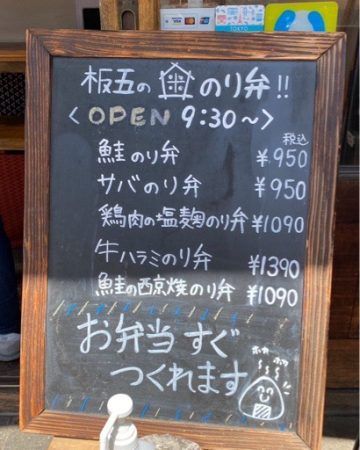 板五の のり弁!!
<OPEN 9:30~>
税込
鮭のり弁 ¥950
サバのり弁 ¥950
鶏肉の塩麹のり弁 ¥1090
牛ハラミのり弁 ¥1390
鮭の西京焼のり弁 ¥1090
お弁当すぐ
つくれます
ホカ ホカ
VISA
TOKYO